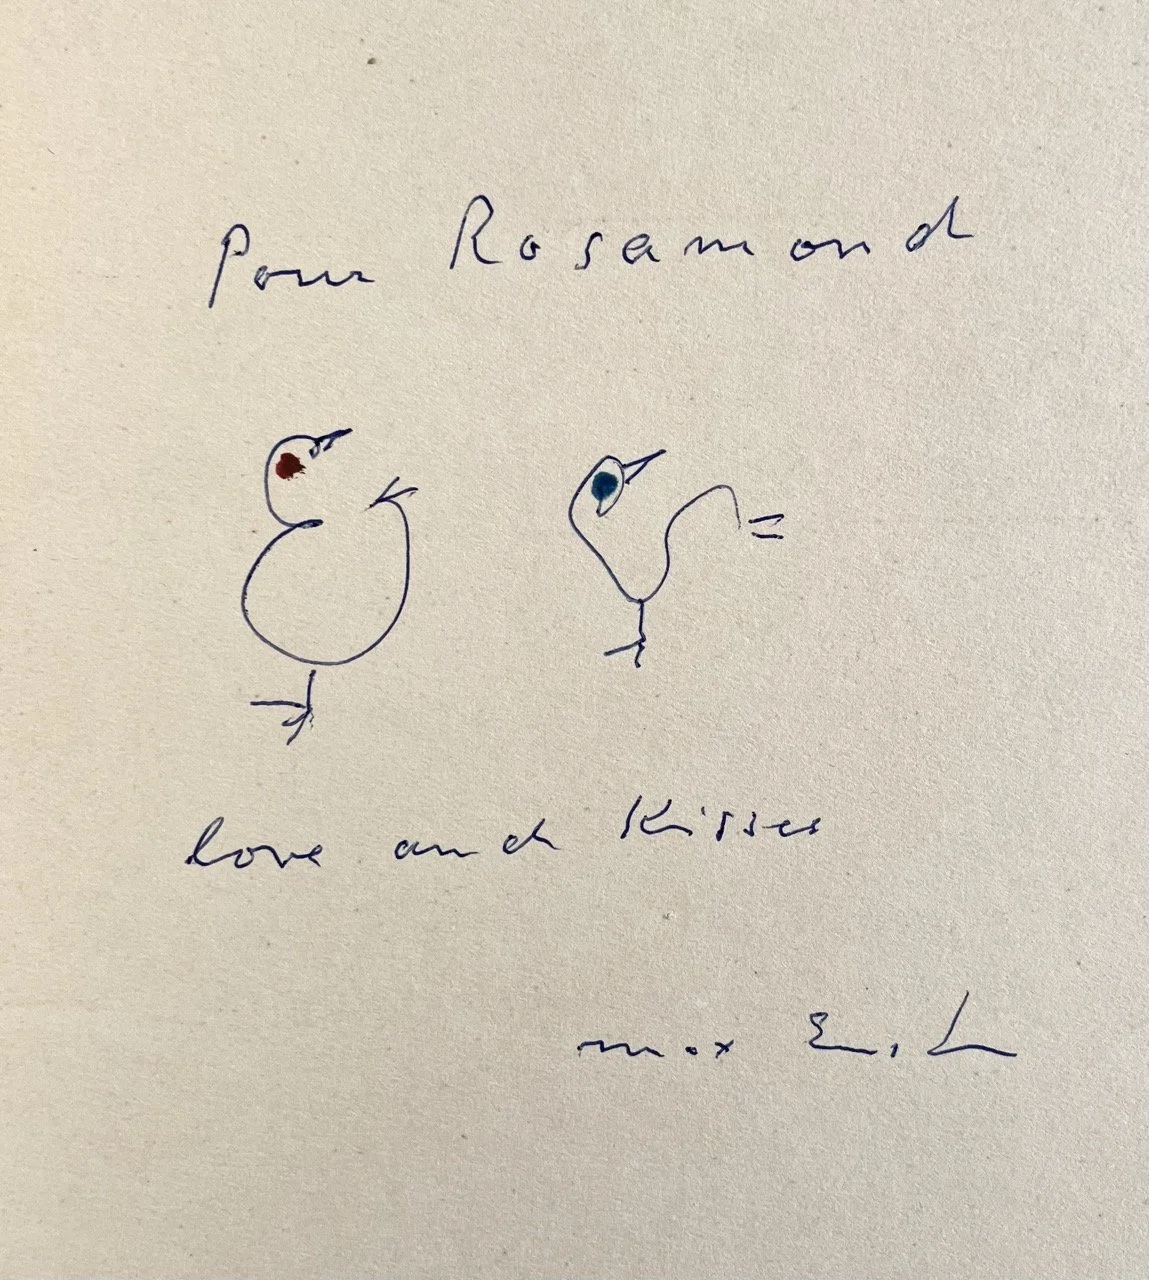 Pour Rosamond
love and Kisses
max Ernst